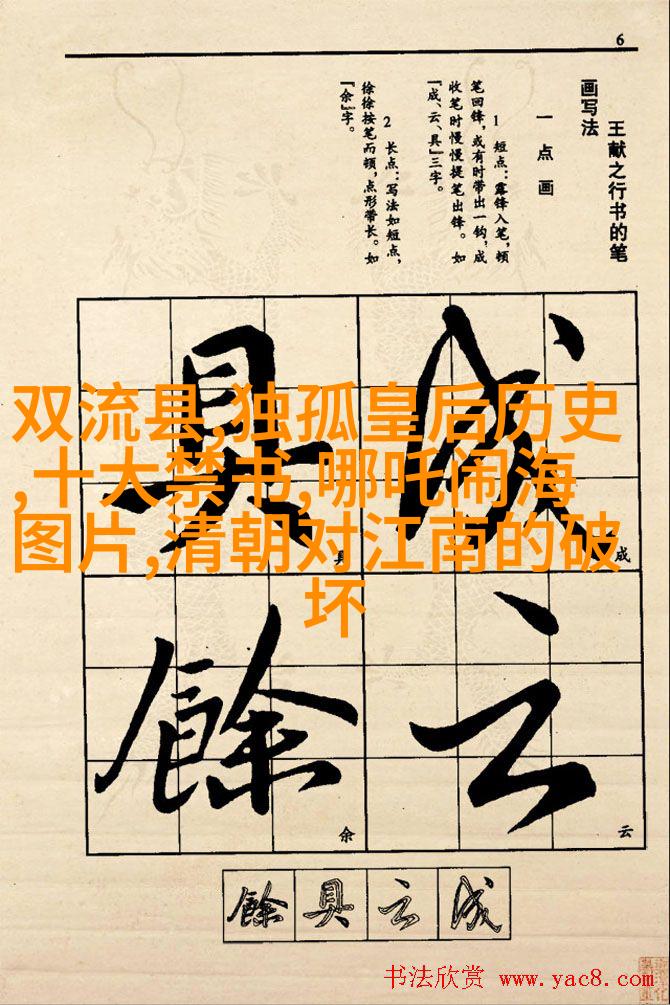 6
王献之行书的笔
画写法
一 点 画
1 短点：露锋入笔，顿
笔回锋，或有时带出一钩，成
收笔时慢慢提笔出锋。如
『成、云、具』三字。
2 长点：写法如短点，
徐徐按笔而顿，点形带长。如
『余』字。
双流县,独孤皇后历史
,十大禁书,哪吒闹海
图片,清朝对江南的破
坏
成
成
云
云
具
具
餘
余
餘 具 云 成
书法欣赏 www.yac8.com